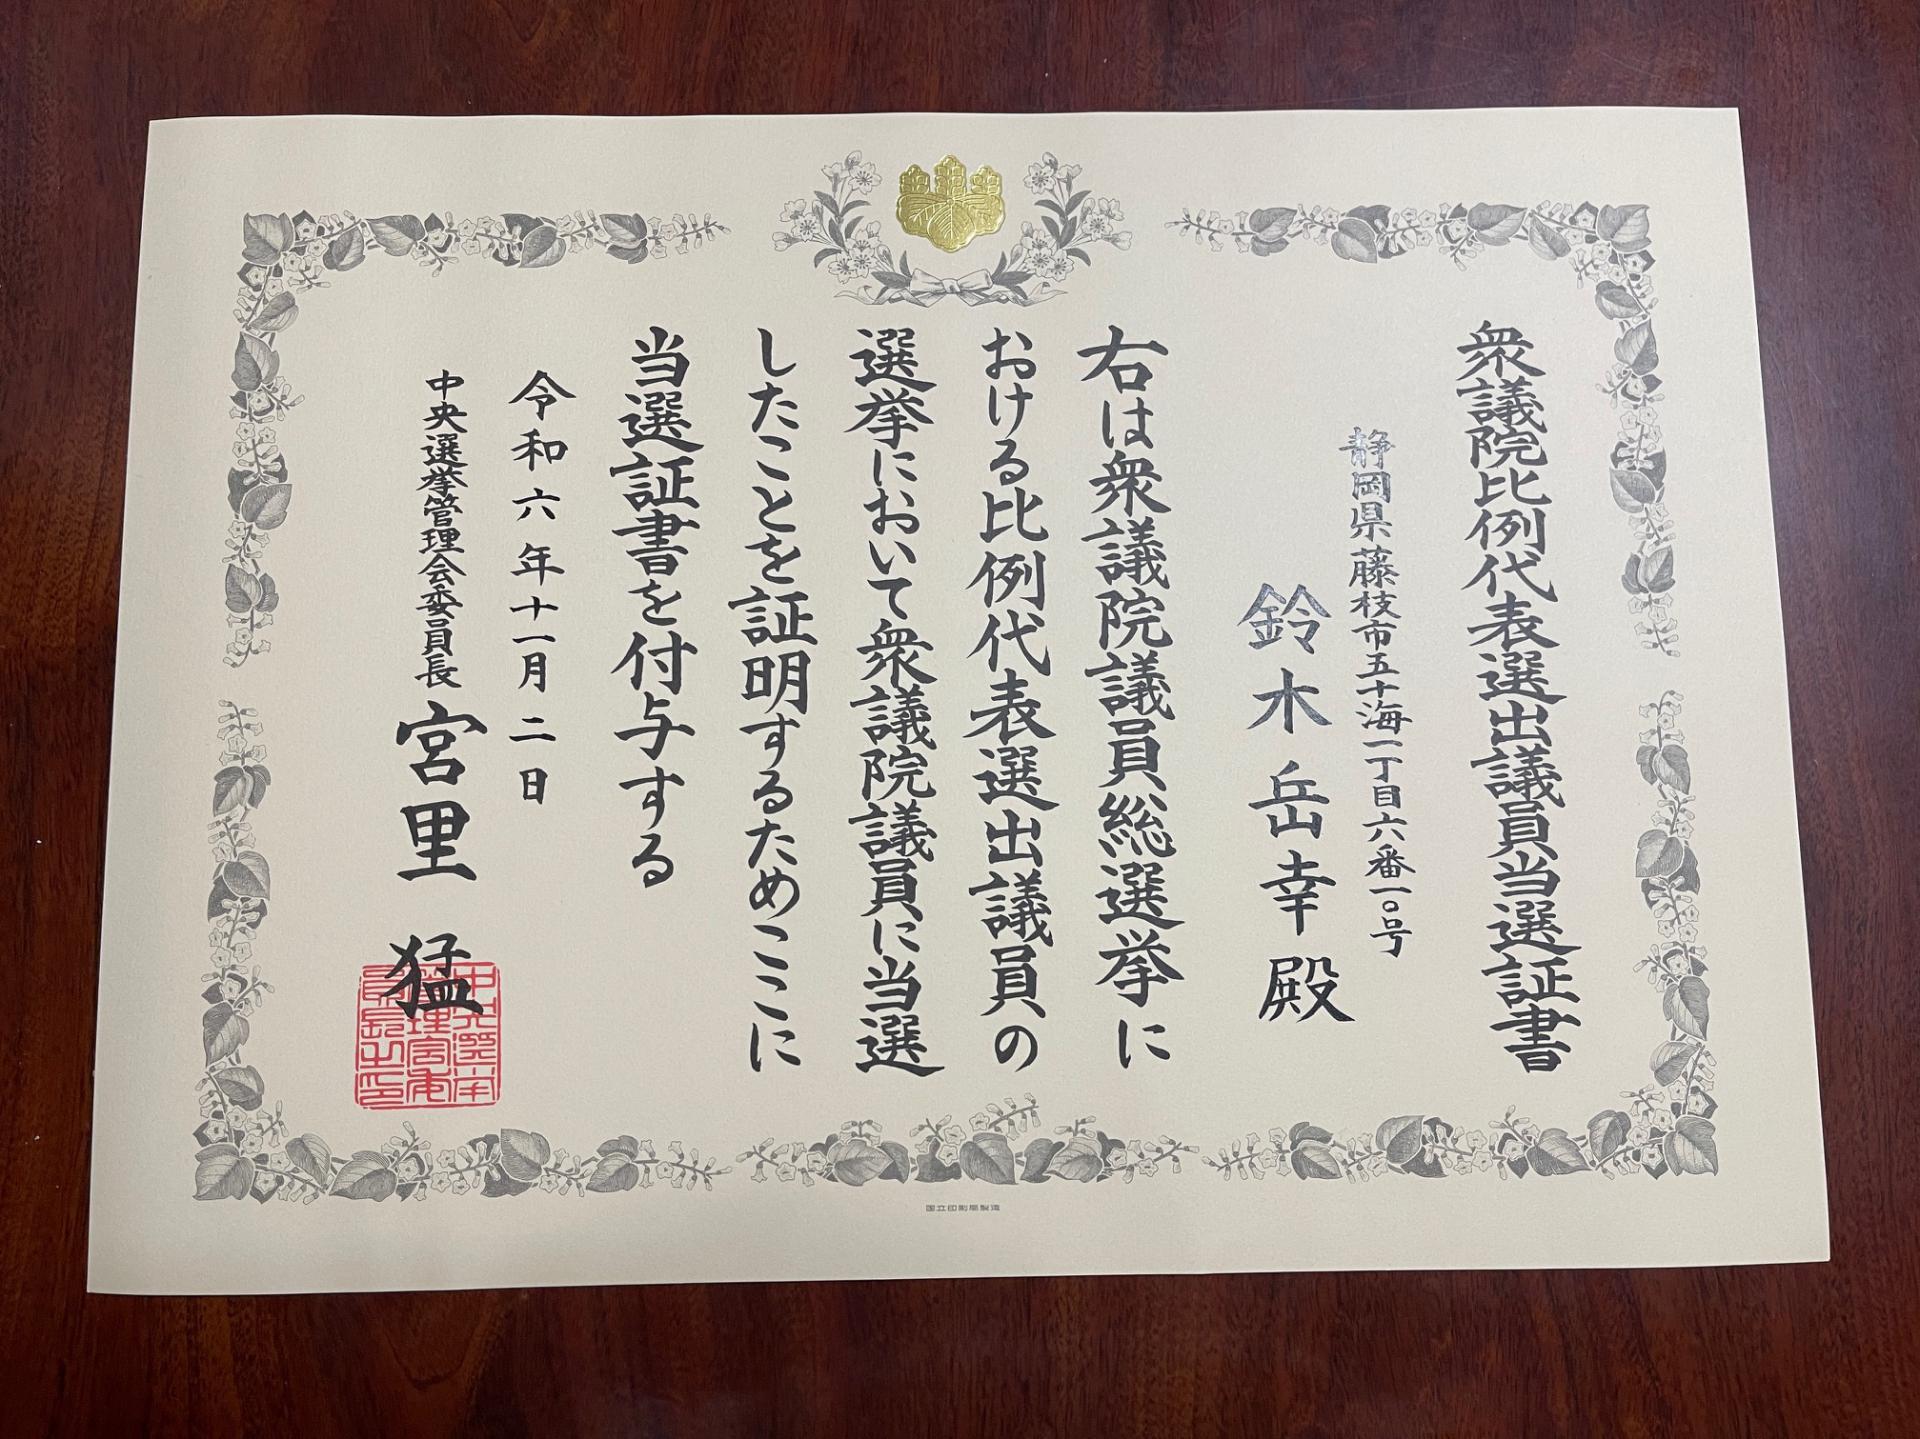 衆議院比例代表選出議員当選証書
静岡県藤枝市五十海一丁目六番一〇号
鈴木岳幸殿
右は衆議院議員総選挙に
おける比例代表選出議員の
選挙において衆議院議員に当選
したことを証明するためここに
当選証書を付与する
令和六年十一月二日
中央選挙管理会委員長 宮里猛
中央選挙管理会委員長之印
国立印刷局製造